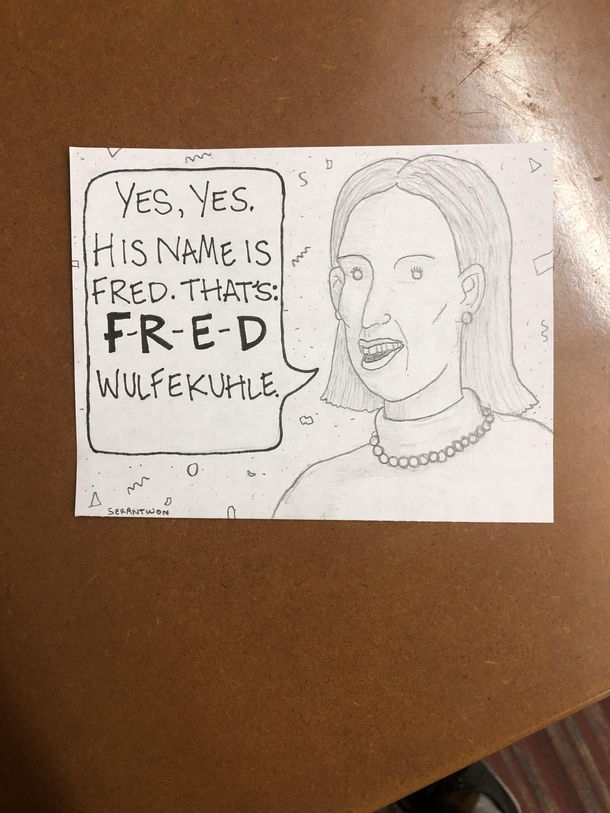 YES, YES.
HIS NAME IS
FRED. THAT'S:
F-R-E-D
WULFEKUHLE.
SERANTWON